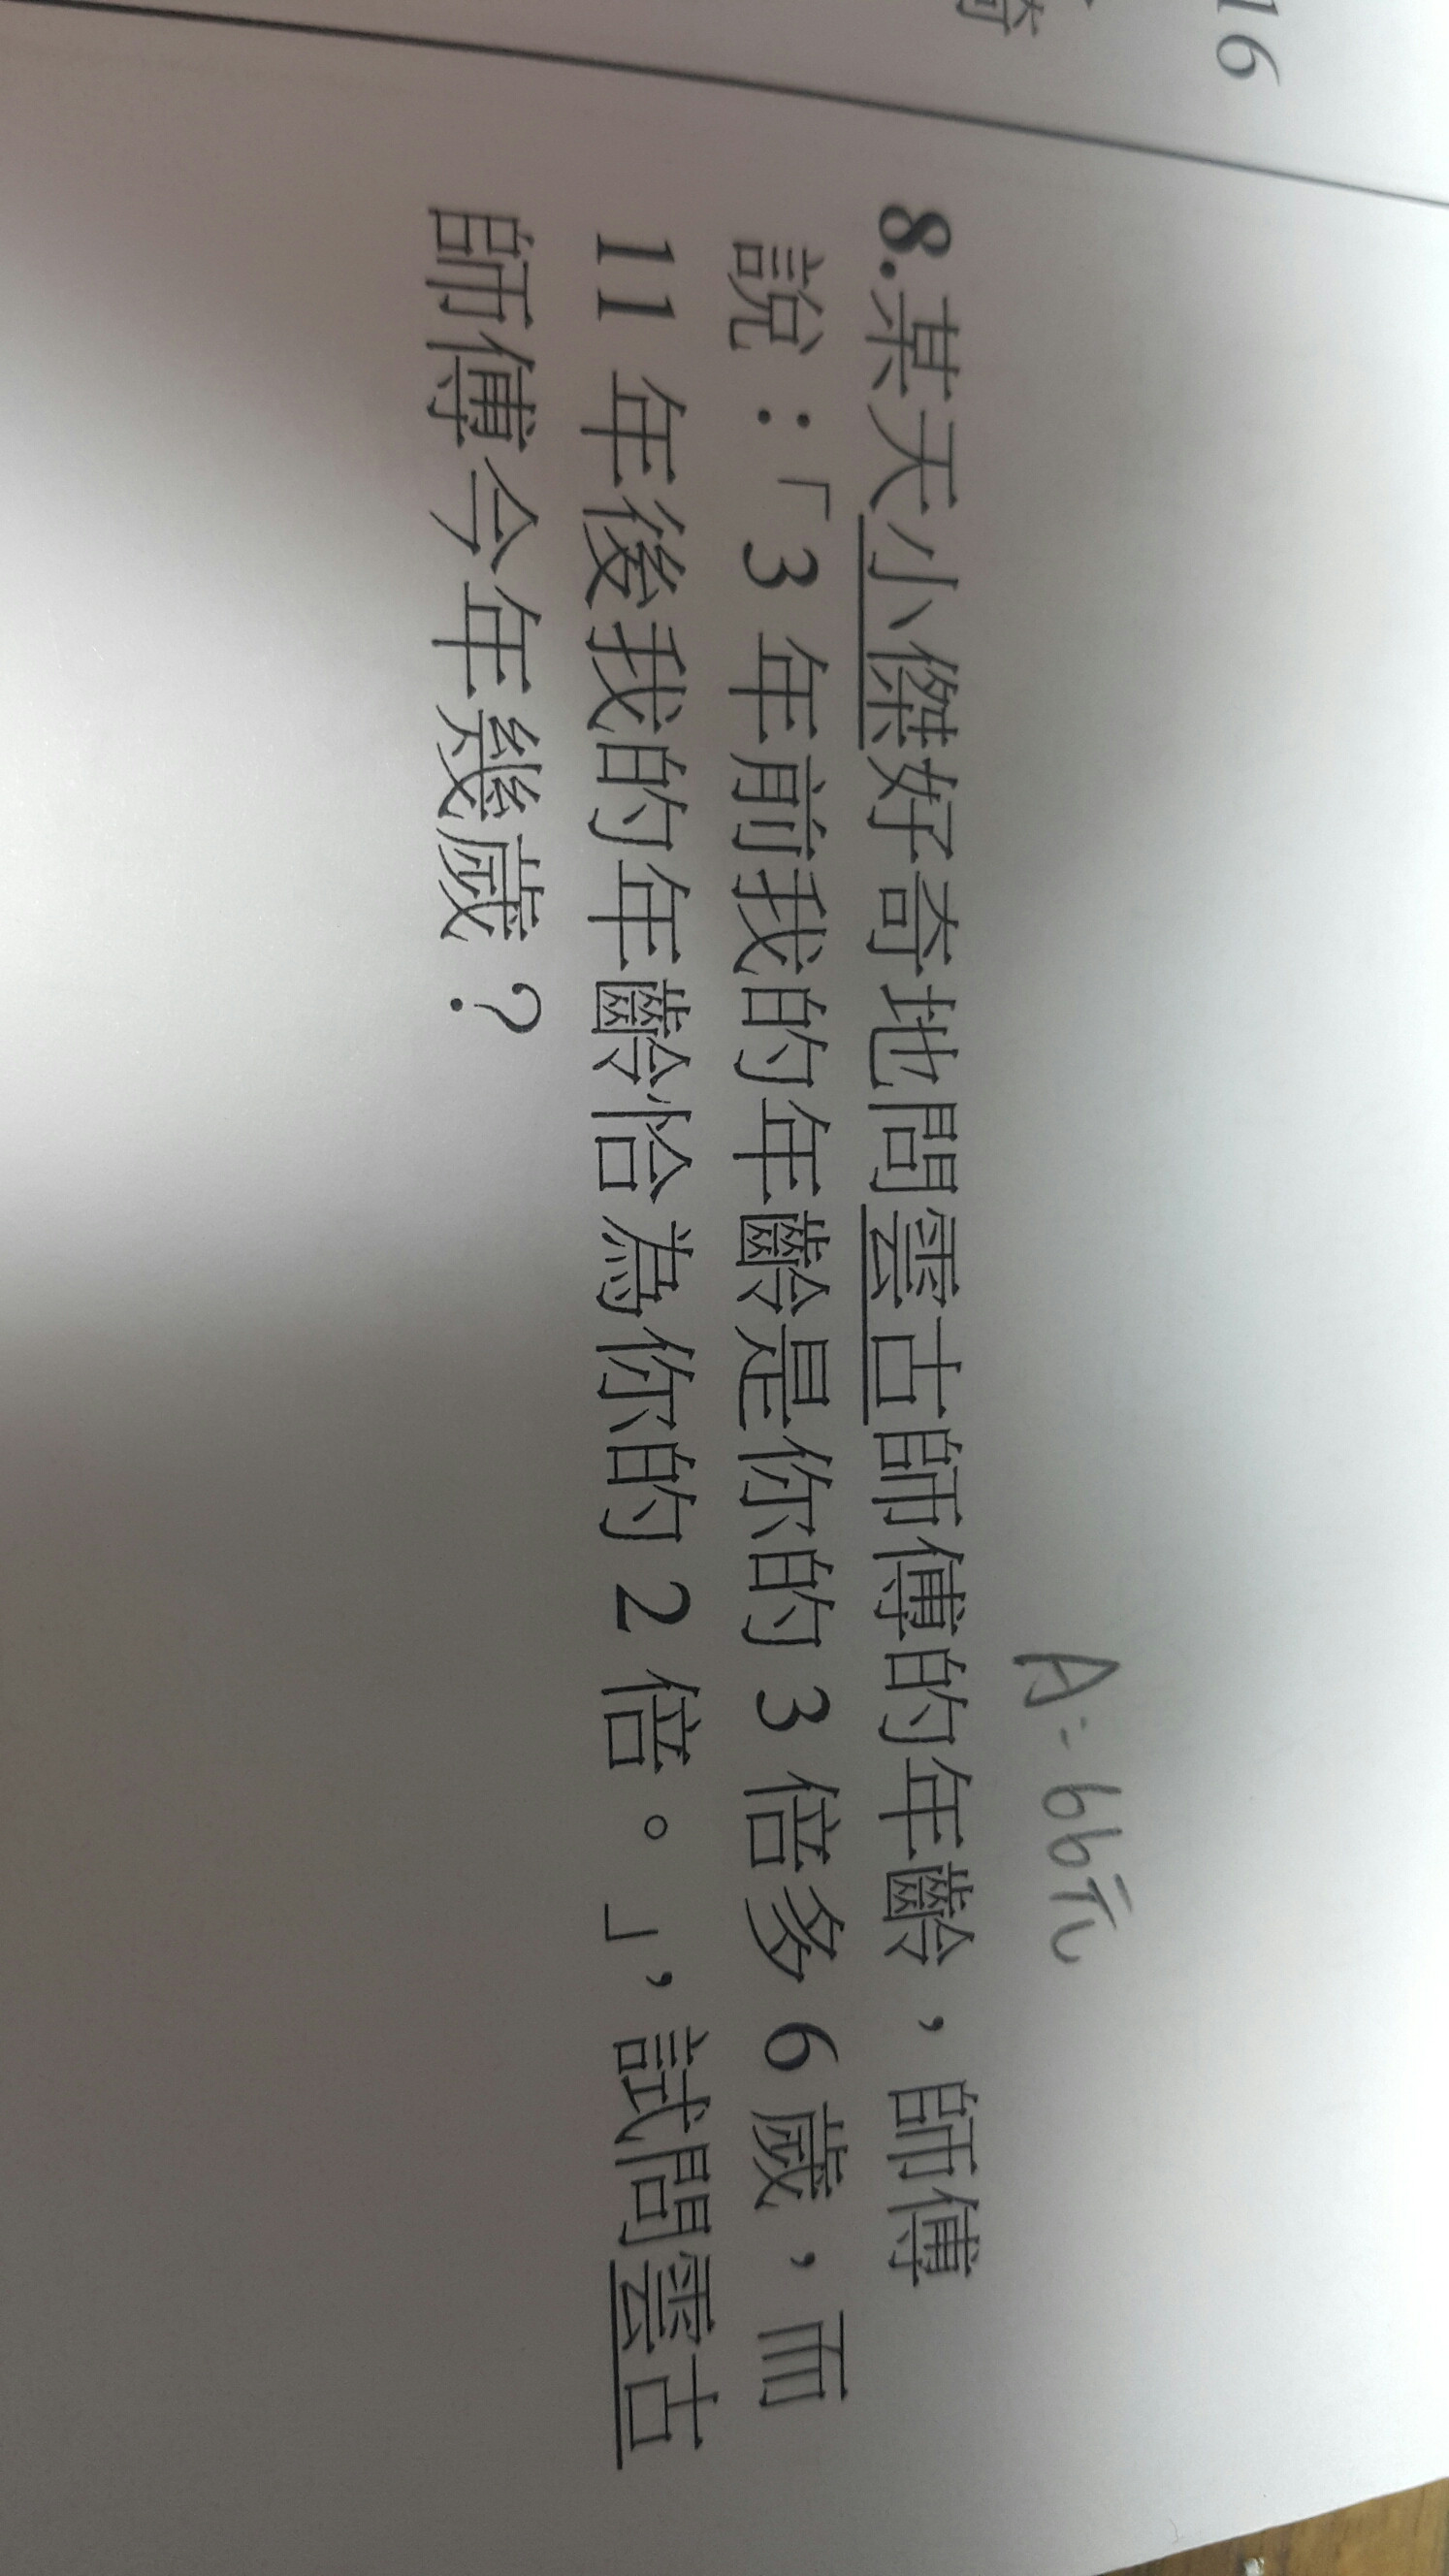 16
8.某天小傑好奇地問雲古師傅的年齡，師傅
說：「3 年前我的年齡是你的 3 倍多 6 歲，而
11 年後我的年齡恰為你的 2 倍。」，試問雲古
師傅今年幾歲？